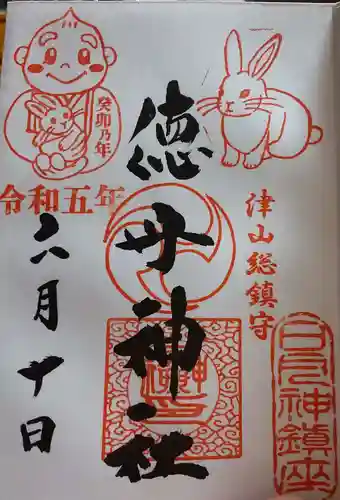 徳守神社
津山総鎮守
癸卯乃年
令和五年
六月十日